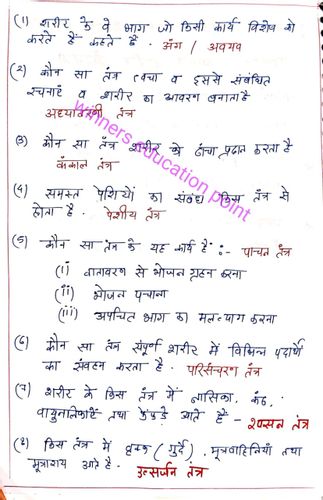 (1) शरीर के वे भाग जो किसी कार्य विशेष को
करते हैं कहते हैं. अंग / अवयव
(2) कौन सा तंत्र त्वचा व इससे संबंधित
रचनाएं व शरीर का आवरण बनाता है
अध्यावरणी तंत्र
(3) कौन सा तंत्र शरीर को ढांचा प्रदान करता है
कंकाल तंत्र
(4) समस्त पेशियों का संबंध किस तंत्र से
होता है. पेशीय तंत्र
(5) कौन सा तंत्र के यह कार्य हैं :- पाचन तंत्र
(i) वातावरण से भोजन ग्रहन करना
(ii) भोजन पचाना
(iii) अपचित भाग का मलत्याग करना
(6) कौन सा तंत्र संपूर्ण शरीर में विभिन्न पदार्थों
का संवहन करता है. परिसंचरण तंत्र
(7) शरीर के किस तंत्र में नासिका, कंठ,
वायुनलिकाएं तथा फेफड़े आते हैं - श्वसन तंत्र
(8) किस तंत्र में वृक्क (गुर्दे), मूत्रवाहिनियाँ तथा
मूत्राशय आते हैं. उत्सर्जन तंत्र
winners education point